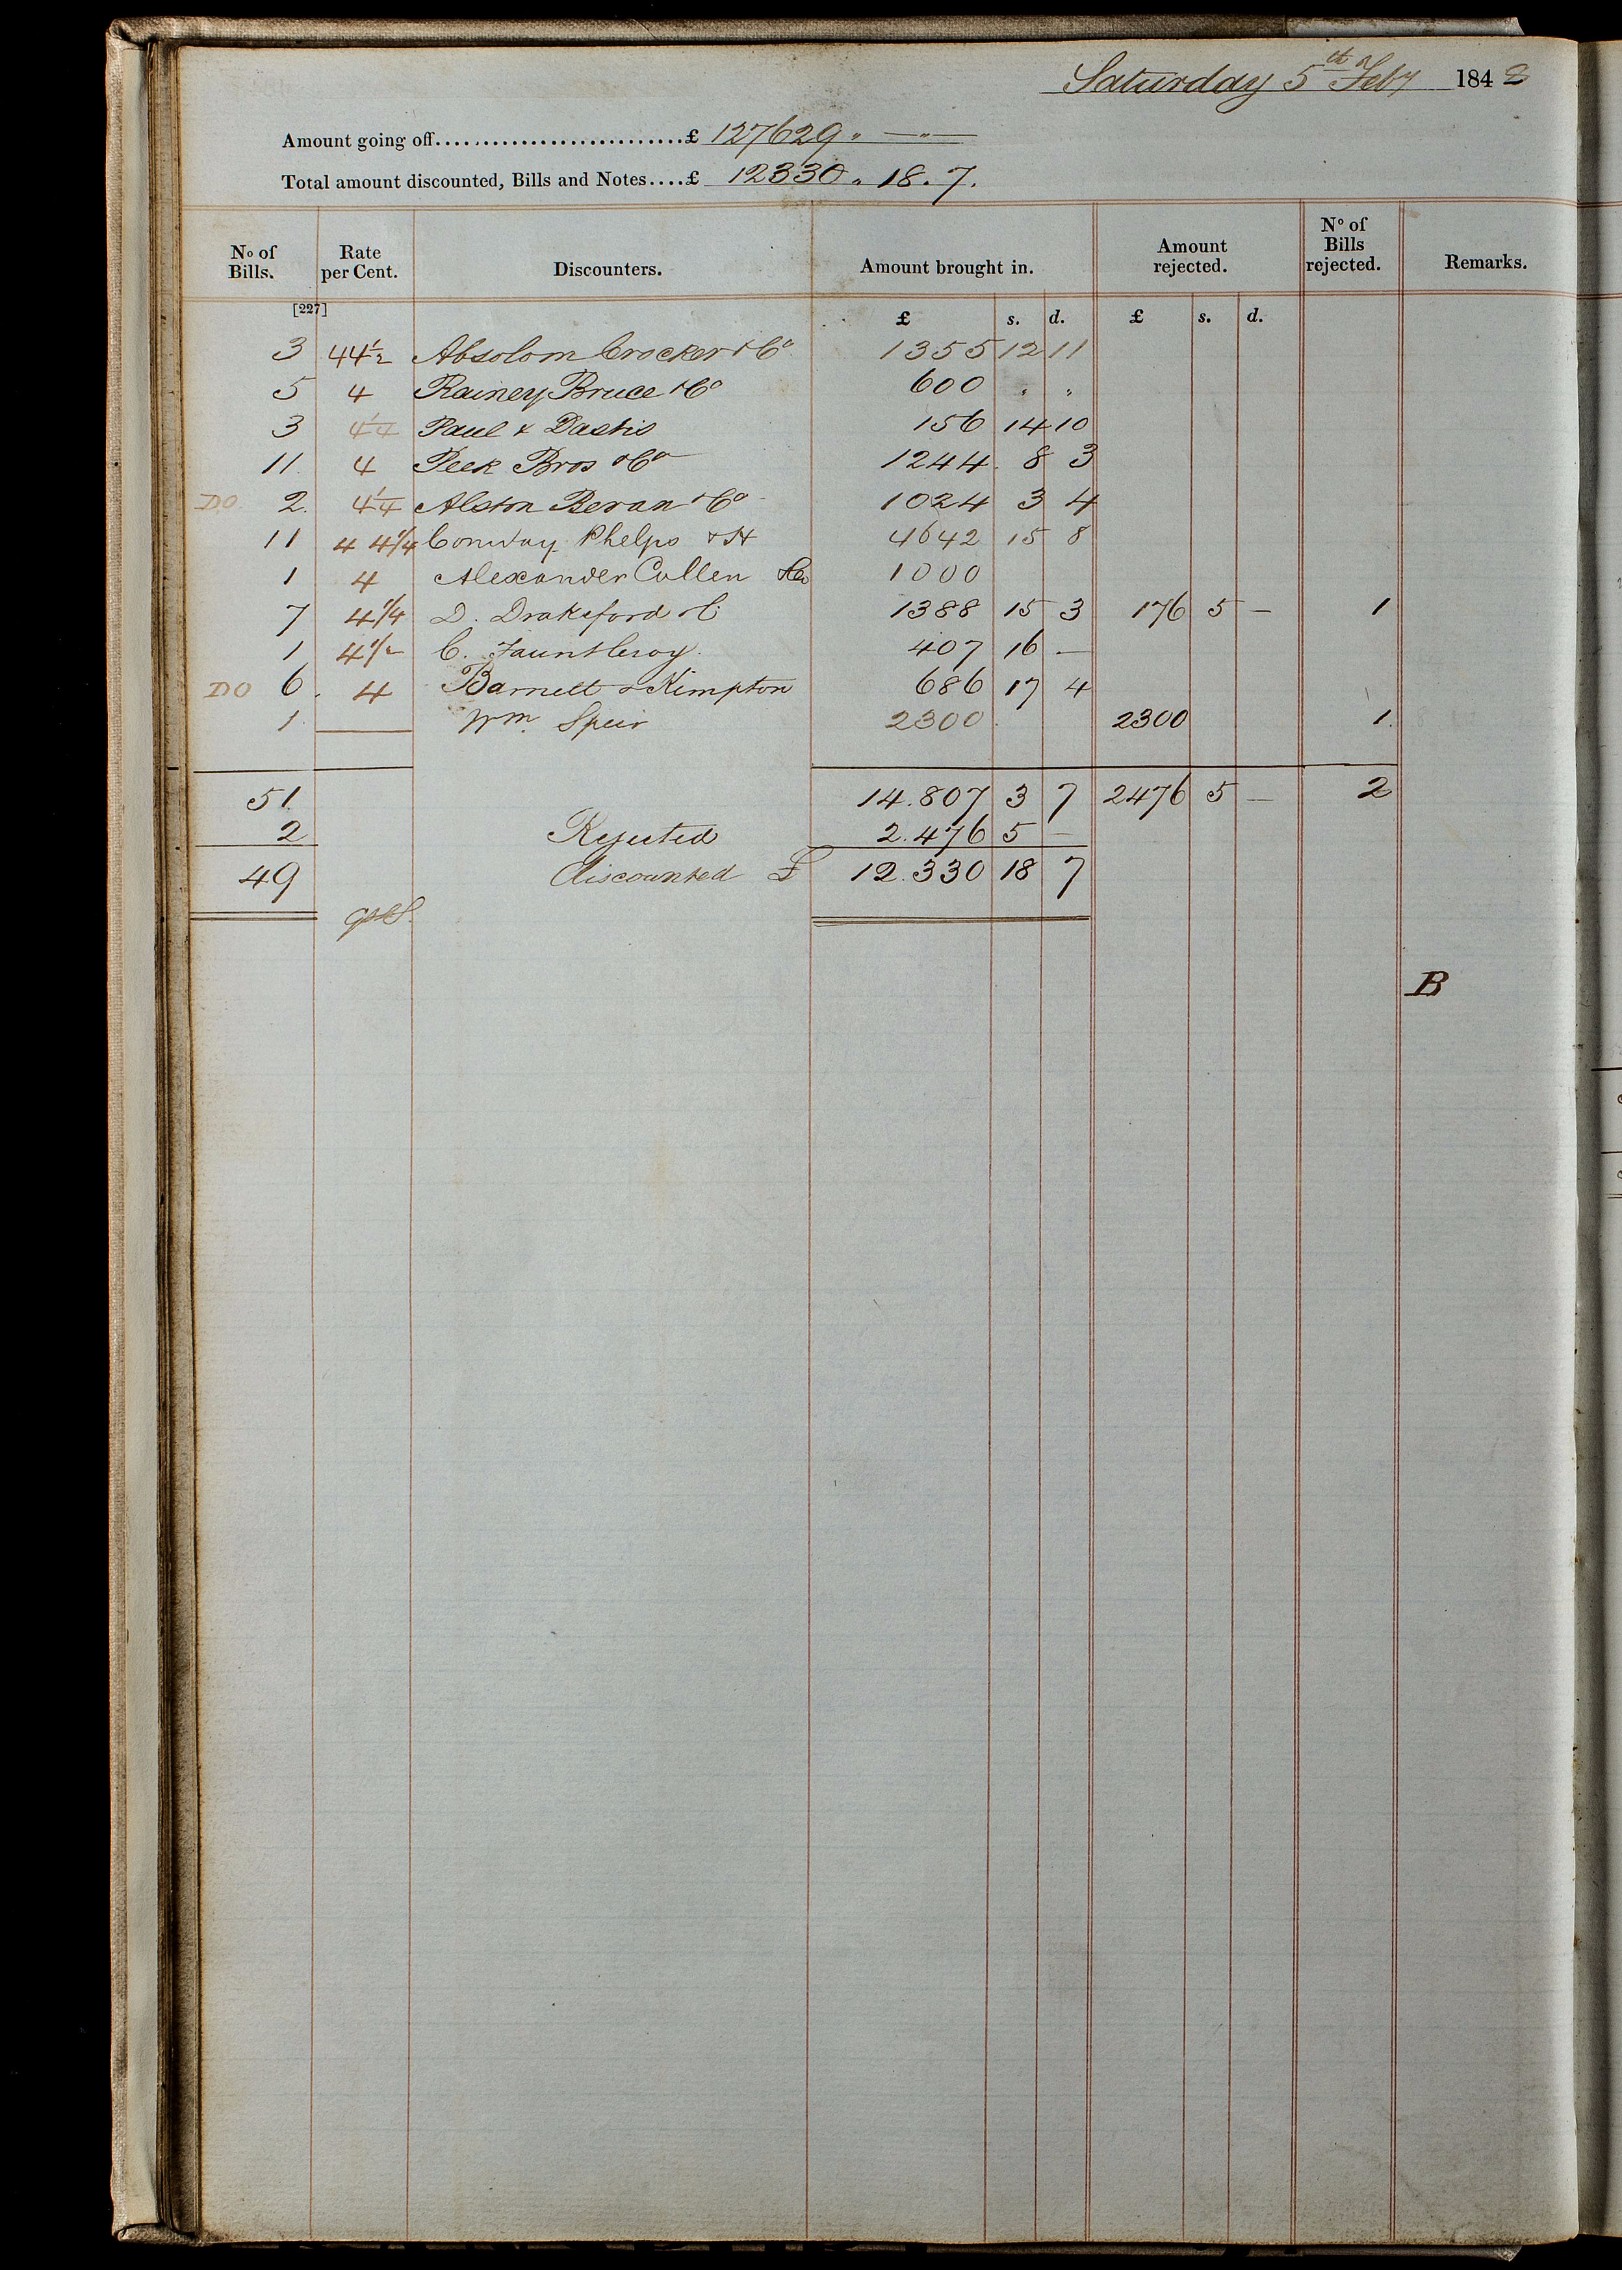 Saturday 5th Feby 1848
Amount going off...........................£ 127629 " — " —
Total amount discounted, Bills and Notes....£ 12330 " 18 . 7 .
No of Bills. Rate per Cent. Discounters. Amount brought in. Amount rejected. No of Bills rejected. Remarks.
[227] £ s. d. £ s. d.
3 4 4½ Absolom Crocker & Co 1355 12 11
5 4 Rainey Bruce & Co 600 " "
3 4¼ Paul & 156 14 10
11 4 Peek Bros & Co 1244 8 3
DO 2 4¼ Alston Bevan & Co 1024 3 4
11 4 4¼ Conway Phelps & H 4642 15 8
1 4 Alexander Cullen & Co 1000
7 4¼ D. Drakeford & C 1388 15 3 176 5 — 1
1 4½ C. Fauntleroy 407 16 —
DO 6 4 Barnett & Kimpton 686 17 4
1 — Wm. Speir 2300 2300 1
51 14.807 3 7 2476 5 — 2
2 Rejected 2.476 5 —
49 discounted £ 12.330 18 7
B